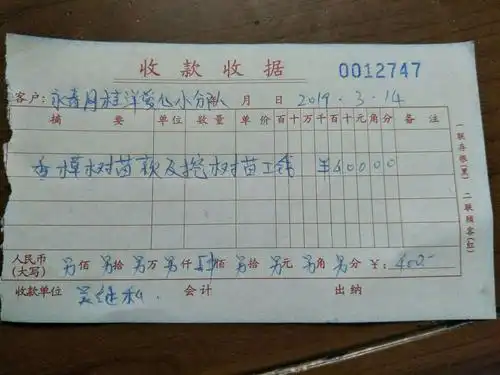 收款收据 0012747
客户: 永春月桂洋萤心小分队 月 日 2019.3.14
摘要 单位 数量 单价 百十万千百十元角分 备注
香樟树苗款及挖树苗工钱 ¥40000
人民币(大写) 另佰 另拾 另万 另仟 佰 另拾 另元 另角 另分 ¥: 400-
收款单位 会计 出纳
一联存根(黑) 二联顾客(红)